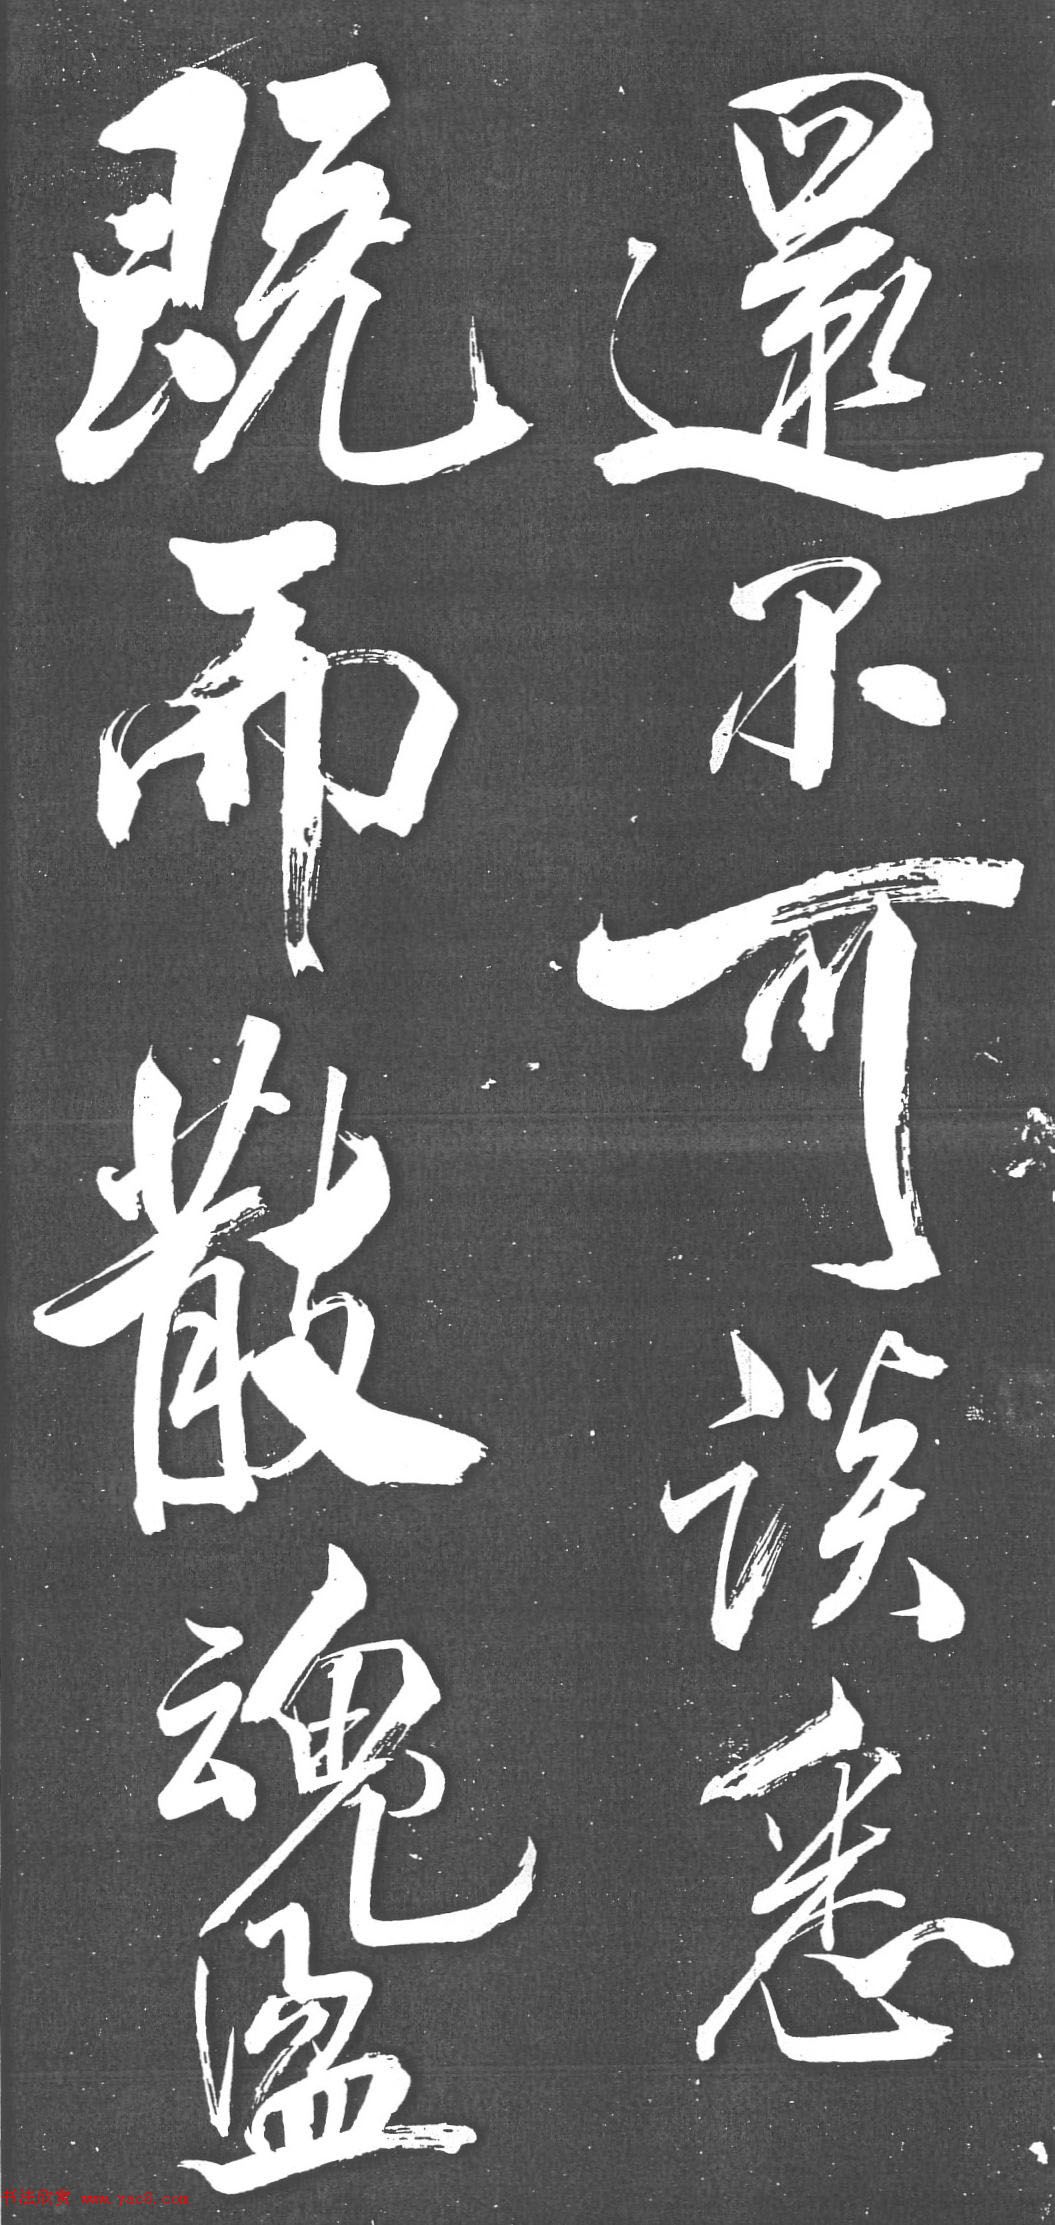 還不可談悉
既而散魂蕩
书法欣赏 www.yac8.com